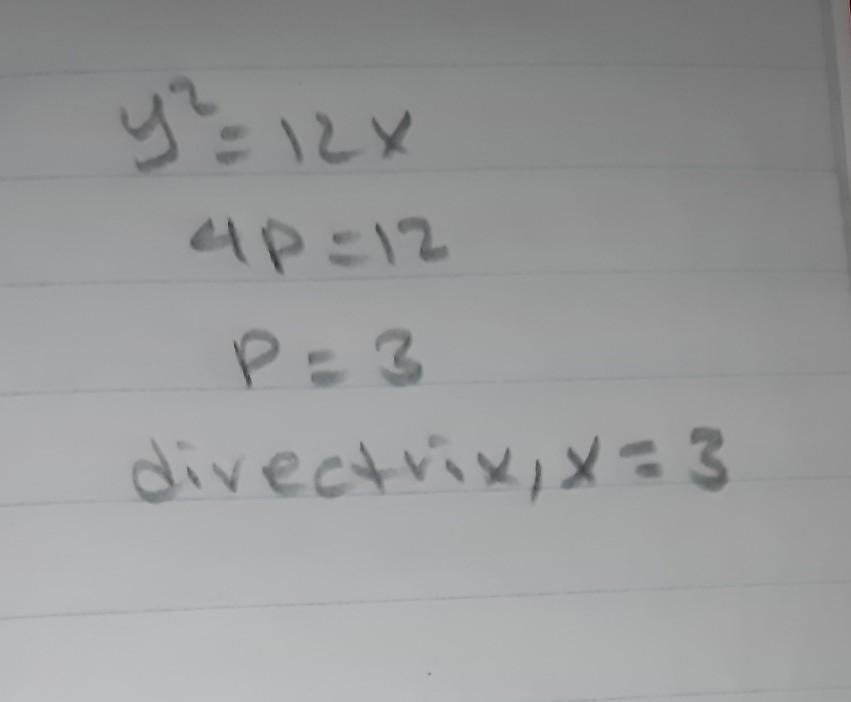 y² = 12x
4P = 12
P = 3
directrix, x = 3